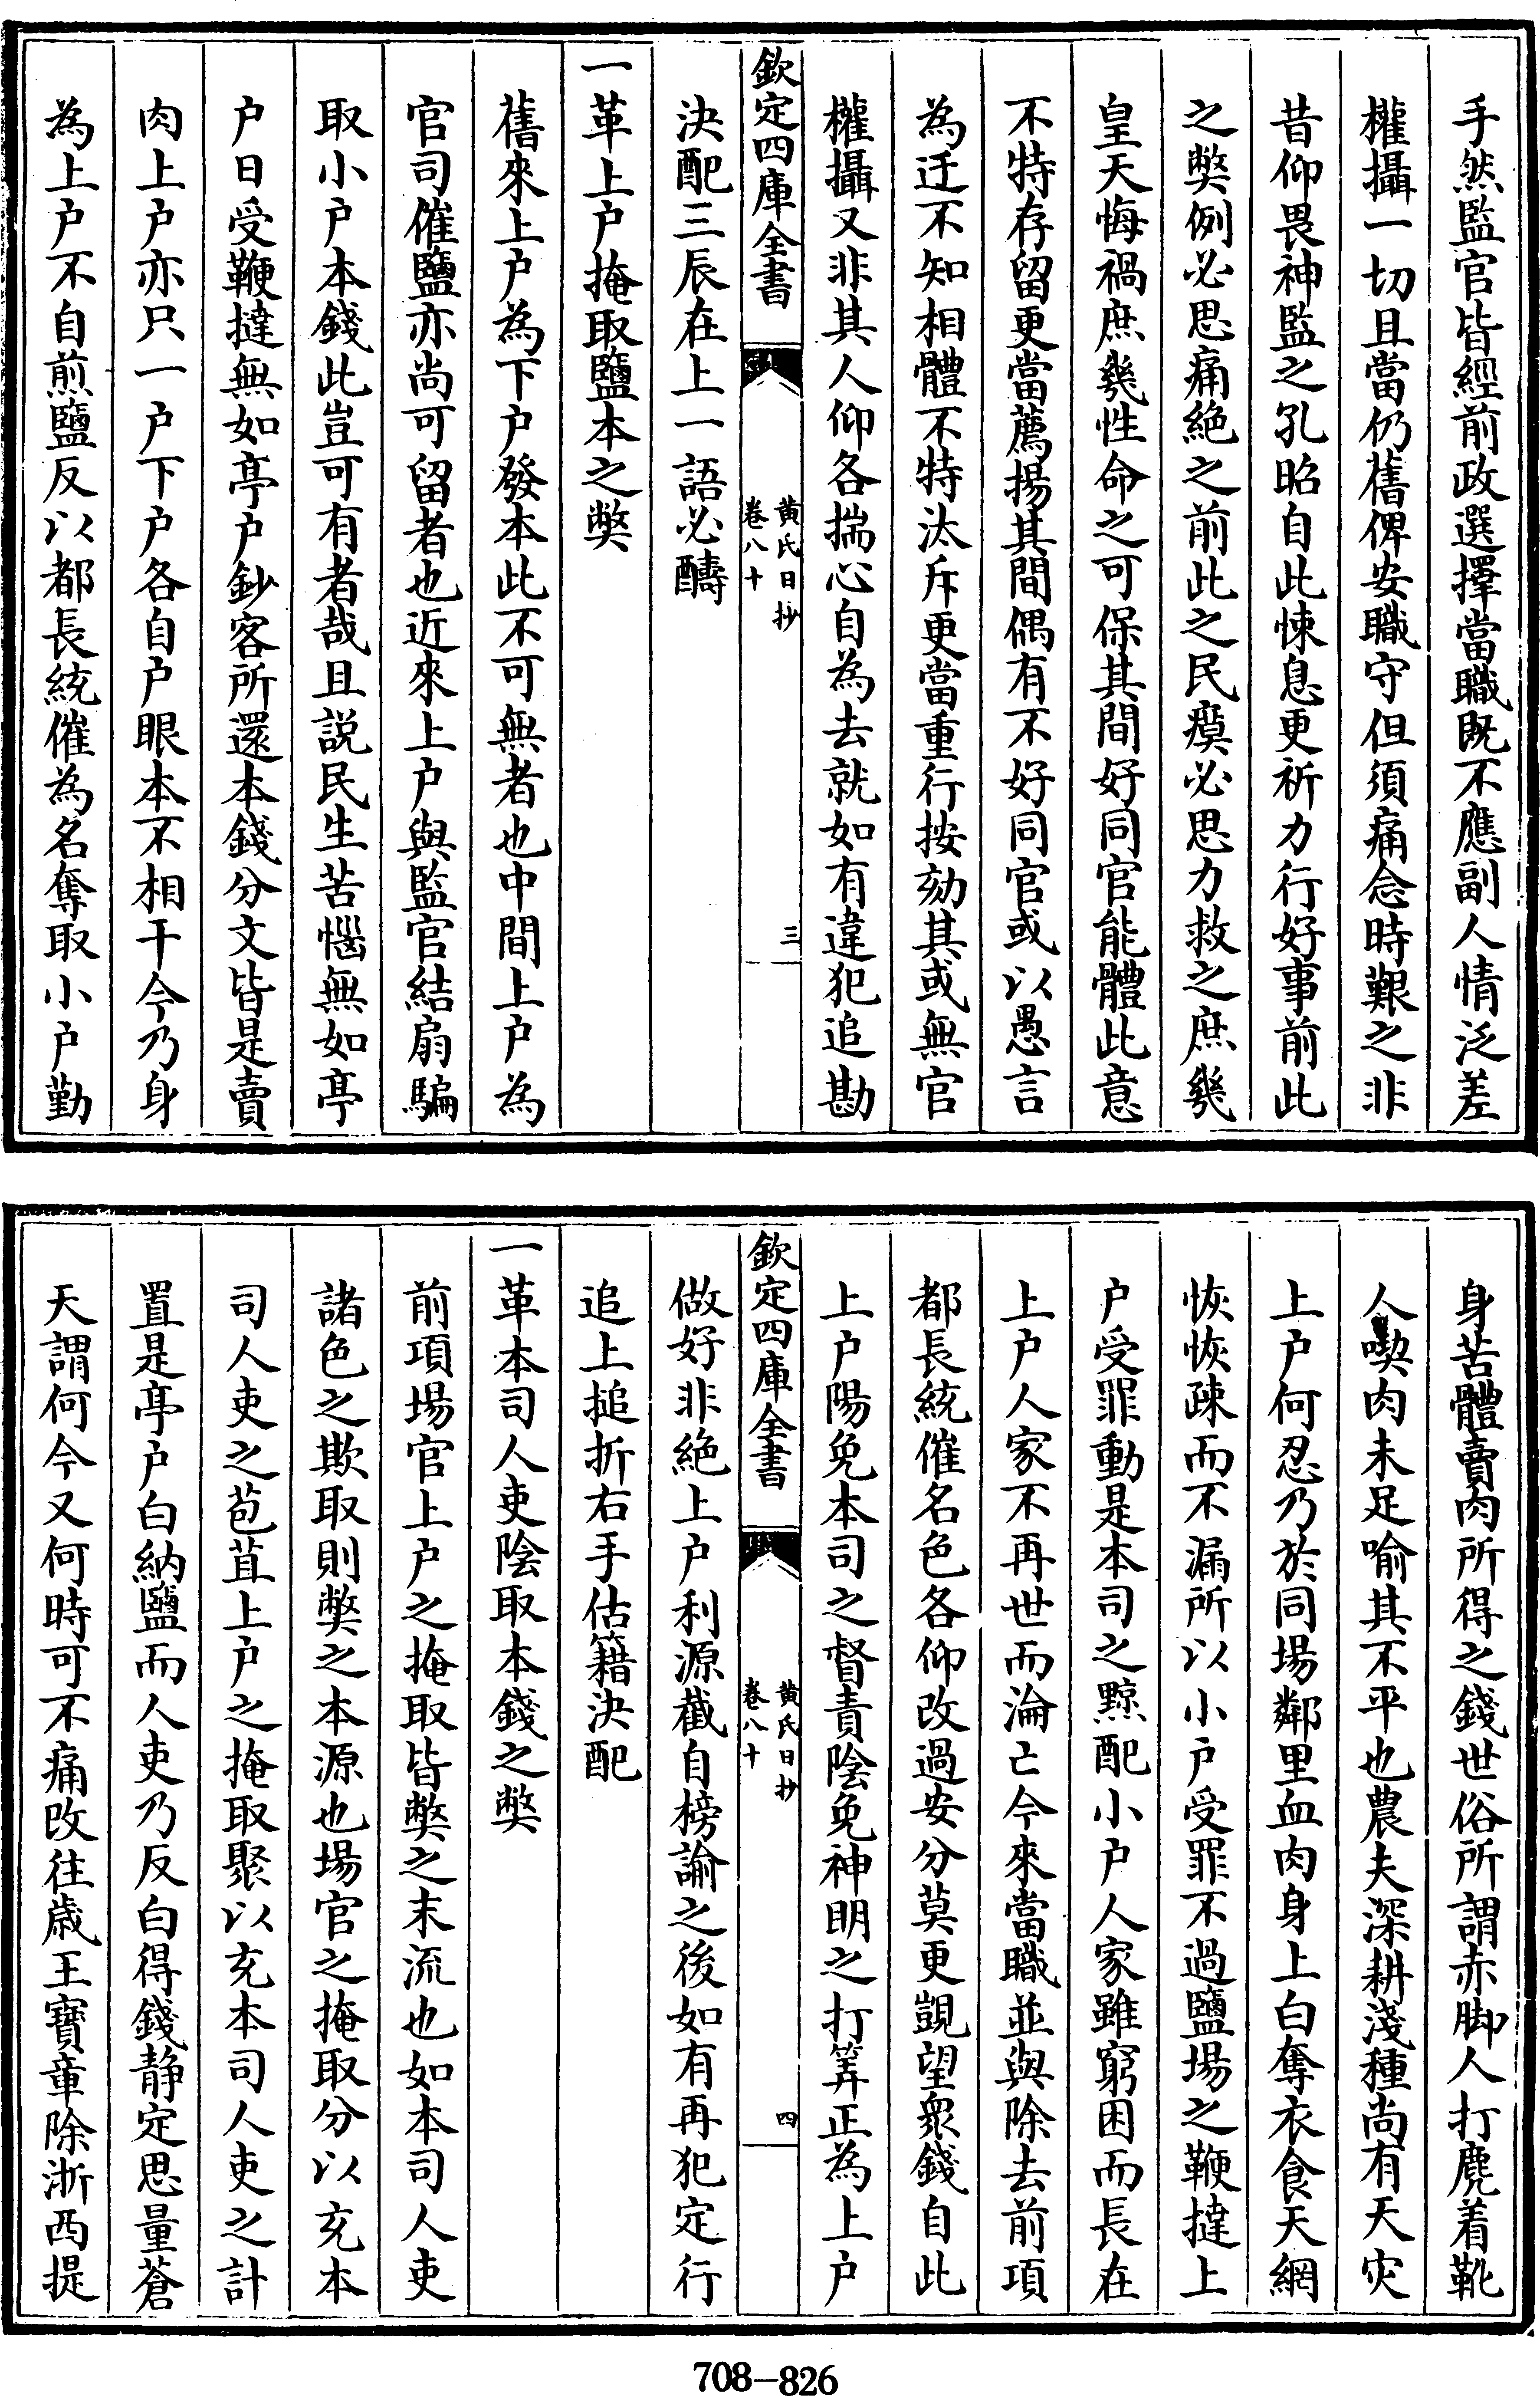 手然監官皆經前政選擇當職既不應副人情泛差
權攝一切且當仍舊俾安職守但須痛念時艱之非
昔仰畏神監之孔昭自此悚息更祈力行好事前此
之弊例必思痛絶之前此之民瘼必思力救之庶幾
皇天悔禍庶幾性命之可保其間好同官能體此意
不特存留更當薦揚其間偶有不好同官或以愚言
為迂不知相體不特汰斥更當重行按劾其或無官
權攝又非其人仰各揣心自為去就如有違犯追勘
欽定四庫全書
黄氏日抄
卷八十
三
決配三辰在上一語必酬
一革上户掩取鹽本之弊
舊來上户為下户發本此不可無者也中間上户為
官司催鹽亦尚可留者也近來上户與監官結扇騙
取小户本錢此豈可有者哉且説民生苦惱無如亭
户日受鞭撻無如亭户鈔客所還本錢分文皆是賣
肉上户亦只一户下户各自户眼本不相干今乃身
為上户不自煎鹽反以都長統催為名奪取小户勤
身苦體賣肉所得之錢世俗所謂赤脚人打麂着靴
人喫肉未足喻其不平也農夫深耕淺種尚有天灾
上户何忍乃於同場鄰里血肉身上白奪衣食天網
恢恢疎而不漏所以小户受罪不過鹽場之鞭撻上
户受罪動是本司之黥配小户人家雖窮困而長在
上户人家不再世而淪亡今來當職並與除去前項
都長統催名色各仰改過安分莫更覬望衆錢自此
上户陽免本司之督責陰免神明之打筭正為上户
欽定四庫全書
黄氏日抄
卷八十
四
做好非絶上户利源截自榜諭之後如有再犯定行
追上搥折右手估籍決配
一革本司人吏陰取本錢之弊
前項場官上户之掩取皆弊之末流也如本司人吏
諸色之欺取則弊之本源也場官之掩取分以充本
司人吏之苞苴上户之掩取聚以充本司人吏之計
置是亭户白納鹽而人吏乃反白得錢静定思量蒼
天謂何今又何時可不痛改往歳王寶章除浙西提
708-826